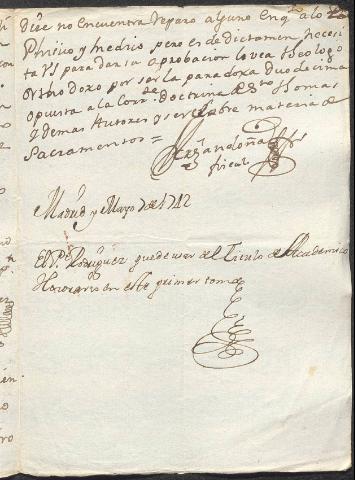 Dice no encuentra reparo alguno en q.to a lo
Phisico y medico pero es de dictamen necesi
ta VS para dar su aprobacion lo vea theologo
Orthodoxo por ser la paradoxa duodecima
opuesta a la Corr.te doctrina de S.to Thomas
y demas Autores y ser sobre materia de
Sacramentos =
fiscal
Madrid y Mayo 7 de 1742
El P.e Rodriguez puede usar del Titulo de Academico
Honorario en este primer tomo